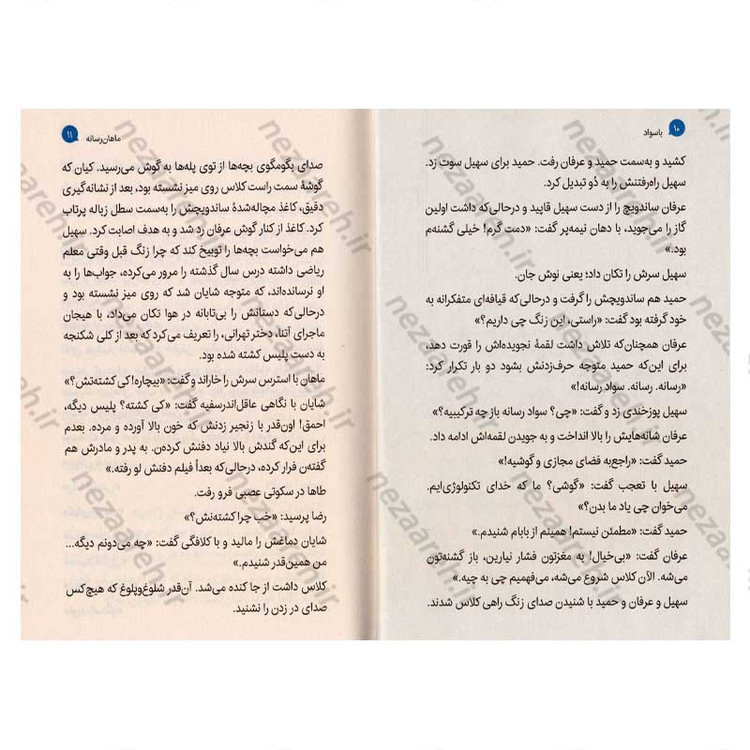 ۱۰ باسواد
کشید و به‌سمت حمید و عرفان رفت. حمید برای سهیل سوت زد.
سهیل راه‌رفتنش را به دُو تبدیل کرد.
عرفان ساندویچ را از دست سهیل قاپید و درحالی‌که داشت اولین
گاز را می‌جوید، با دهان نیمه‌پر گفت: «دمت گرم! خیلی گشنه‌م
بود.»
سهیل سرش را تکان داد؛ یعنی نوش جان.
حمید هم ساندویچش را گرفت و درحالی‌که قیافه‌ای متفکرانه به
خود گرفته بود گفت: «راستی، این زنگ چی داریم؟»
عرفان همچنان‌که تلاش داشت لقمهٔ نجویده‌اش را قورت دهد،
برای این‌که حمید متوجه حرف‌زدنش بشود دو بار تکرار کرد:
«رسانه. رسانه. سواد رسانه!»
سهیل پوزخندی زد و گفت: «چی؟ سواد رسانه باز چه ترکیبیه؟»
عرفان شانه‌هایش را بالا انداخت و به جویدن لقمه‌اش ادامه داد.
حمید گفت: «راجع‌به فضای مجازی و گوشیه!»
سهیل با تعجب گفت: «گوشی؟ ما که خدای تکنولوژی‌ایم.
می‌خوان چی یاد ما بدن؟»
حمید گفت: «مطمئن نیستم! همینم از بابام شنیدم.»
عرفان گفت: «بی‌خیال! به مغزتون فشار نیارین، باز گشنه‌تون
می‌شه. الآن کلاس شروع می‌شه، می‌فهمیم چی به چیه.»
سهیل و عرفان و حمید با شنیدن صدای زنگ راهی کلاس شدند.
ماهان‌رسانه ۱۱
صدای بگومگوی بچه‌ها از توی پله‌ها به گوش می‌رسید. کیان که
گوشهٔ سمت راست کلاس روی میز نشسته بود، بعد از نشانه‌گیری
دقیق، کاغذ مچاله‌شدهٔ ساندویچش را به‌سمت سطل زباله پرتاب
کرد. کاغذ از کنار گوش عرفان رد شد و به هدف اصابت کرد. سهیل
هم می‌خواست بچه‌ها را توبیخ کند که چرا زنگ قبل وقتی معلم
ریاضی داشته درس سال گذشته را مرور می‌کرده، جواب‌ها را به
او نرسانده‌اند، که متوجه شایان شد که روی میز نشسته بود و
درحالی‌که دستانش را بی‌تابانه در هوا تکان می‌داد، با هیجان
ماجرای آتنا، دختر تهرانی، را تعریف می‌کرد که بعد از کلی شکنجه
به دست پلیس کشته شده بود.
ماهان با استرس سرش را خاراند و گفت: «بیچاره! کی کشته‌تش؟»
شایان با نگاهی عاقل‌اندرسفیه گفت: «کی کشته؟ پلیس دیگه،
احمق! اون‌قدر با زنجیر زدنش که خون بالا آورده و مرده. بعدم
برای این‌که گندش بالا نیاد دفنش کرده‌ن. به پدر و مادرش هم
گفته‌ن فرار کرده، درحالی‌که بعداً فیلم دفنش لو رفته.»
طاها در سکوتی عصبی فرو رفت.
رضا پرسید: «خب چرا کشته‌نش؟»
شایان دماغش را مالید و با کلافگی گفت: «چه می‌دونم دیگه...
من همین‌قدر شنیدم.»
کلاس داشت از جا کنده می‌شد. آن‌قدر شلوغ‌وپلوغ که هیچ‌کس
صدای در زدن را نشنید.
nezaareh.ir